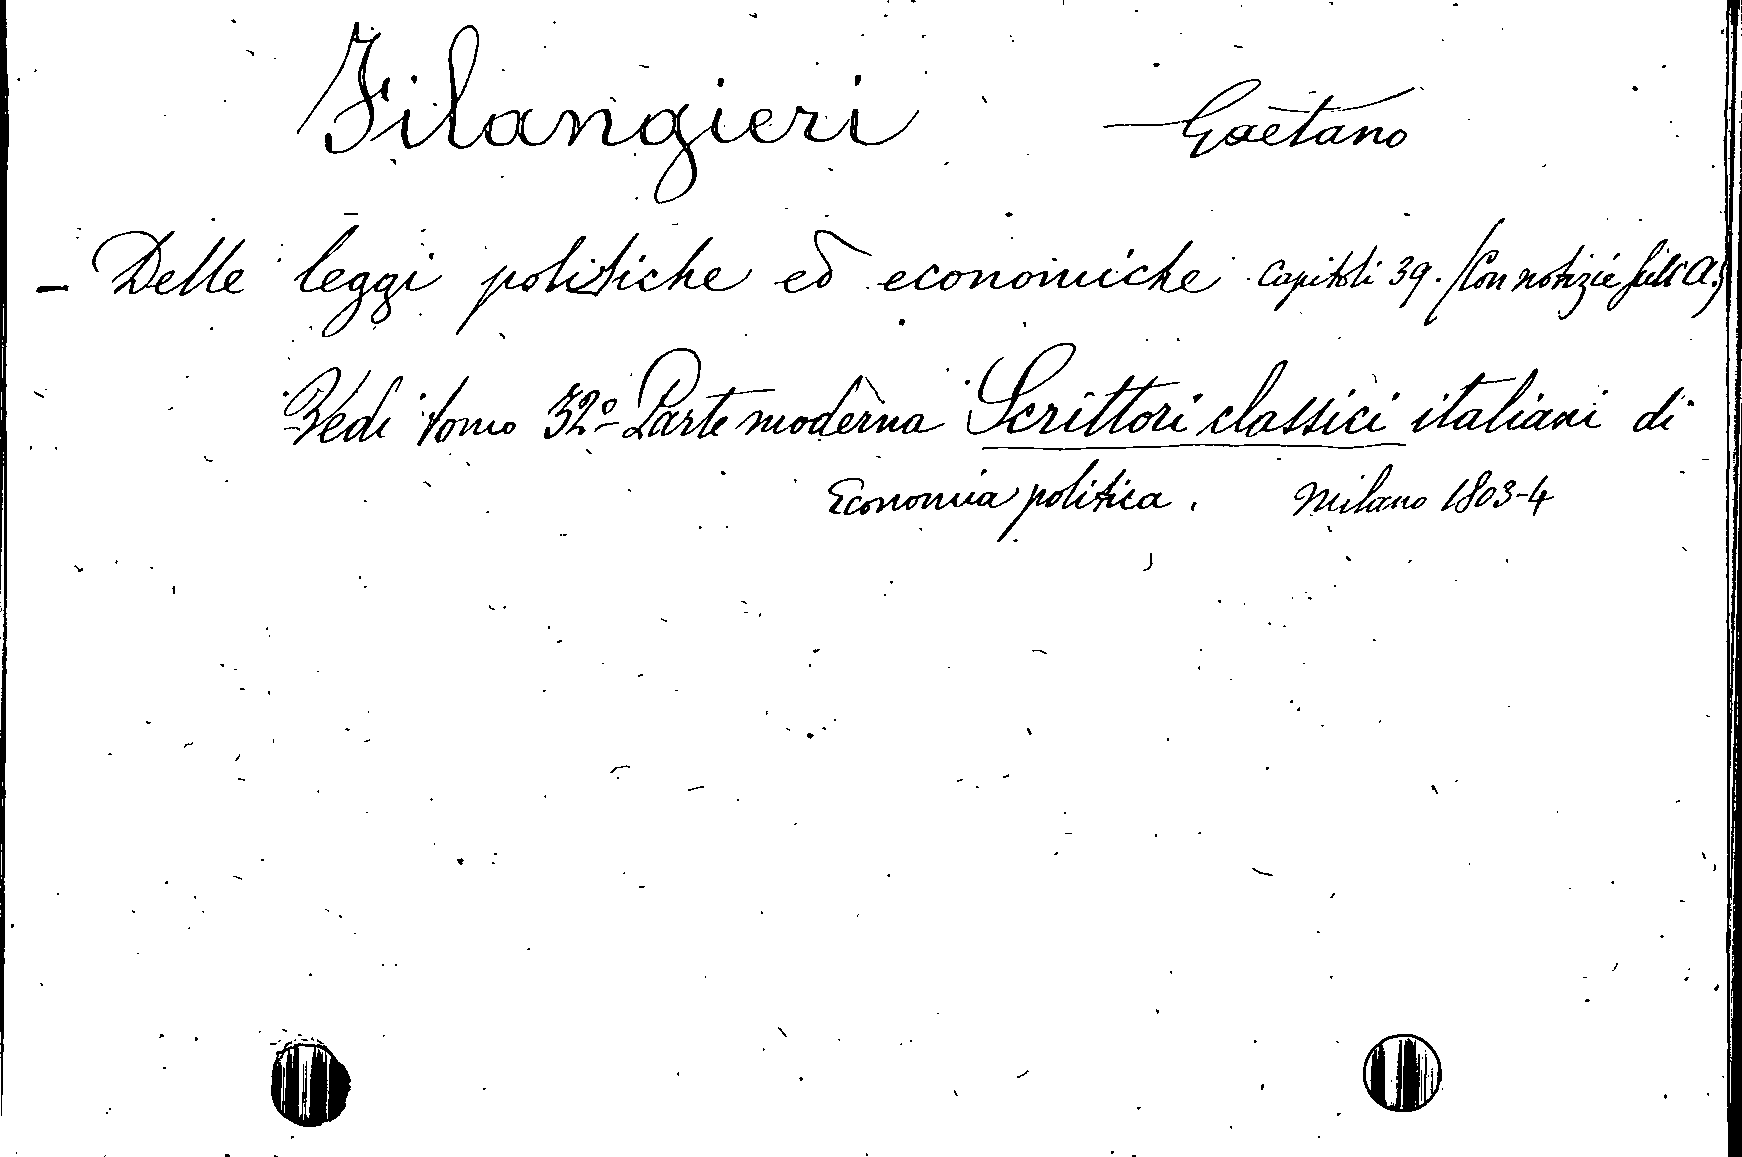 Filangieri Gaetano
- Delle leggi politiche ed economiche Capitoli 39. (Con notizie sull'A.)
Vedi tomo 32º Parte moderna Scrittori classici italiani di
Economia politica. Milano 1803-4